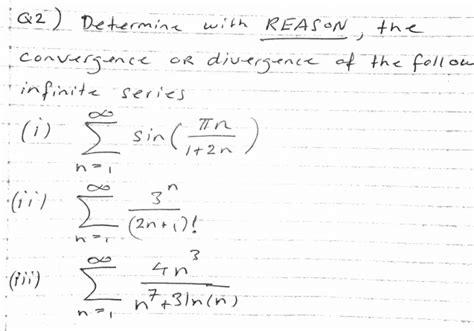 Q2) Determine with REASON, the
convergence OR divergence of the follow
infinite series
(i) ∞ Σ n=1 sin(πn/1+2n)
(ii) ∞ Σ n=1 3^n/(2n+1)!
(iii) ∞ Σ n=1 4n^3/n^7+3ln(n)